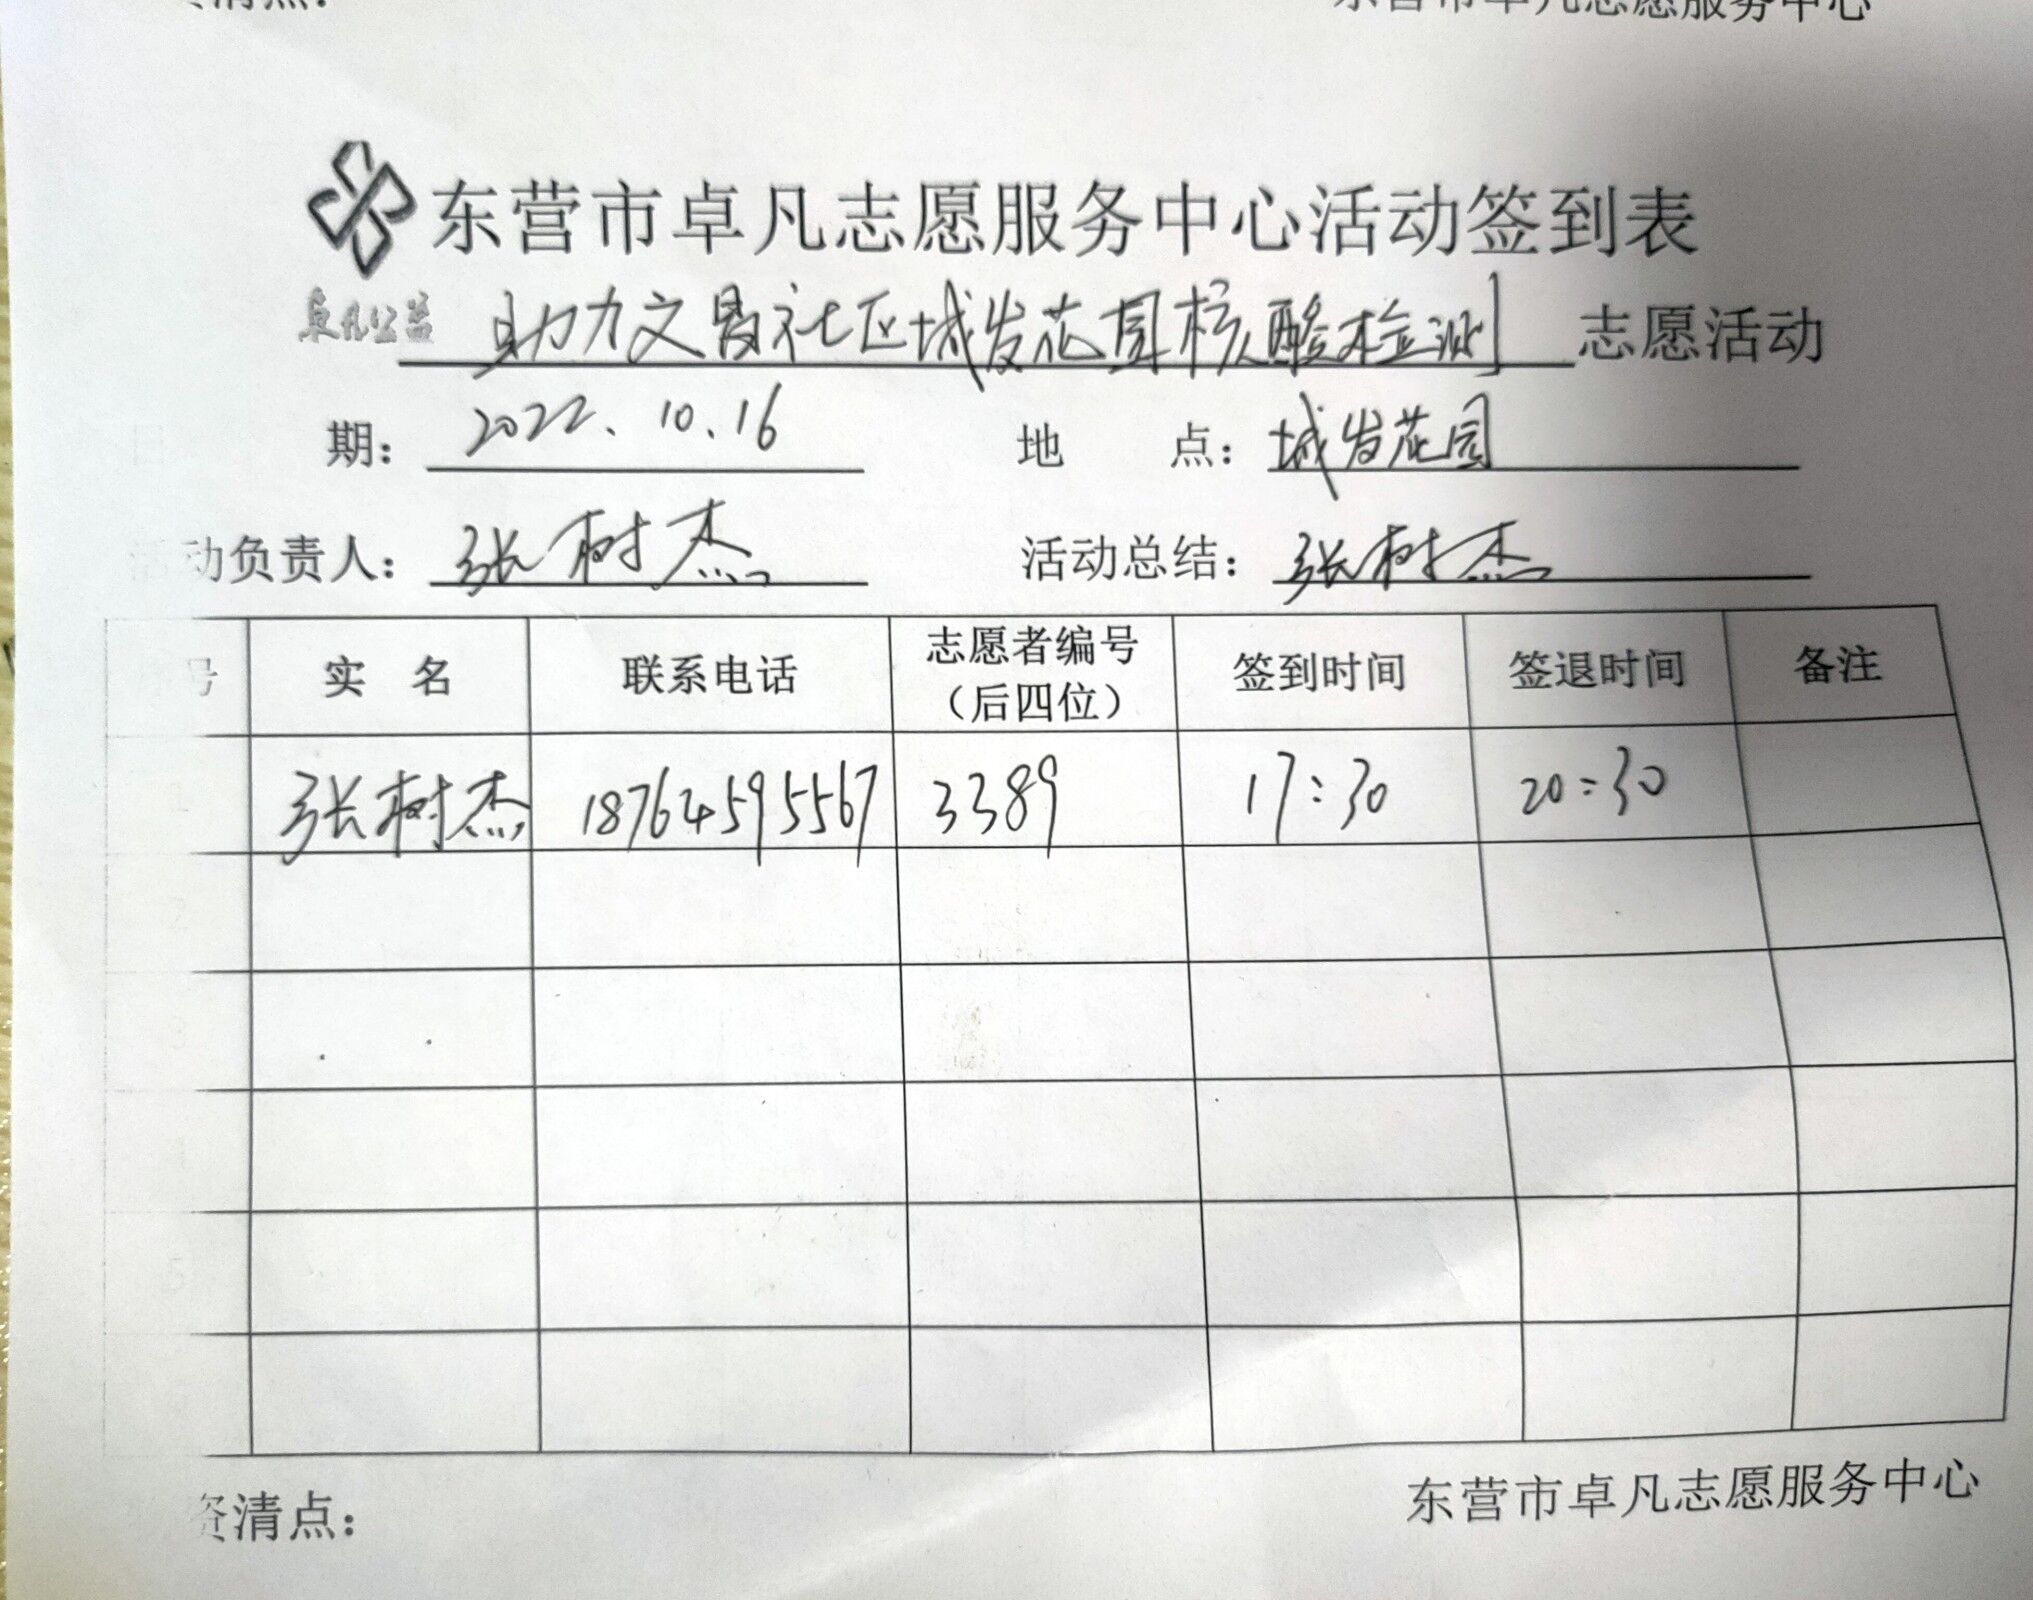 清点：
东营市卓凡志愿服务中心
东营市卓凡志愿服务中心活动签到表
卓凡公益
助力文昌社区城发花园核酸检测 志愿活动
日 期： 2022.10.16 地 点： 城发花园
活动负责人： 张树杰 活动总结： 张树杰
号 实 名 联系电话 志愿者编号（后四位） 签到时间 签退时间 备注
张树杰 18764595567 3389 17:30 20:30
2
3
5
资清点：
东营市卓凡志愿服务中心